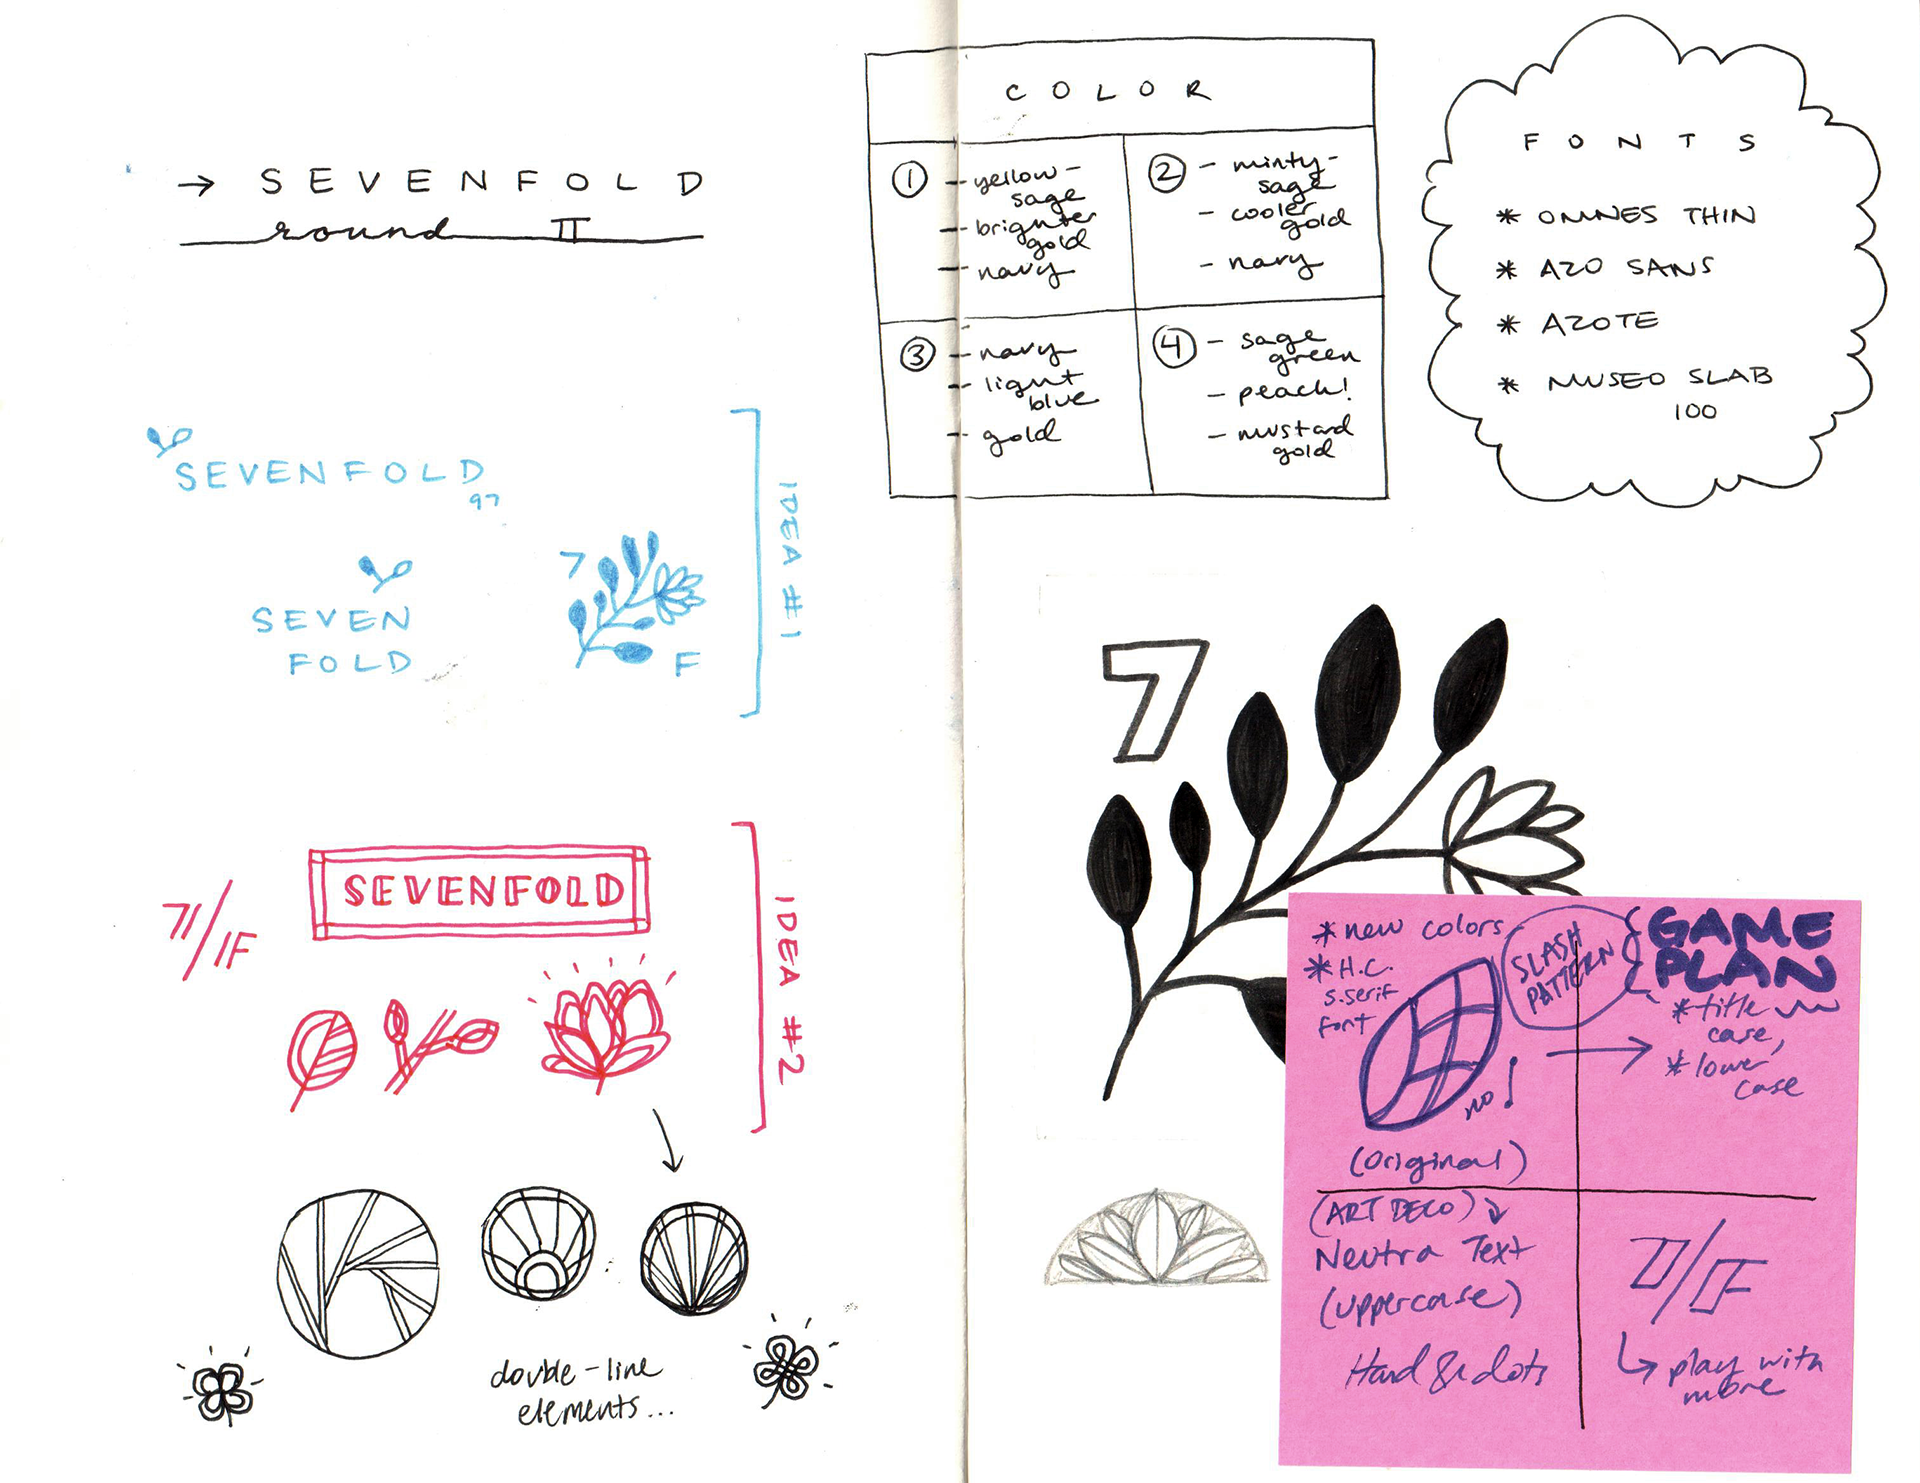 → SEVENFOLD
round II
SEVENFOLD
97
SEVEN
FOLD
7
F
IDEA #1
7/F
SEVENFOLD
IDEA #2
double-line
elements...
COLOR
1
- yellow-
sage
- brighter
gold
- navy
2
- minty-
sage
- cooler
gold
- navy
3
- navy
- light
blue
- gold
4
- sage
green
- peach!
- mustard
gold
FONTS
* OMNES THIN
* AZO SANS
* AZOTE
* MUSEO SLAB
100
7
* new colors
* H.C.
s.serif
font
SLASH
PATTERN
GAME
PLAN
* title
case,
* lower
case
no!
(original)
(ART DECO)
Neutra Text
(uppercase)
7/F
play with
more